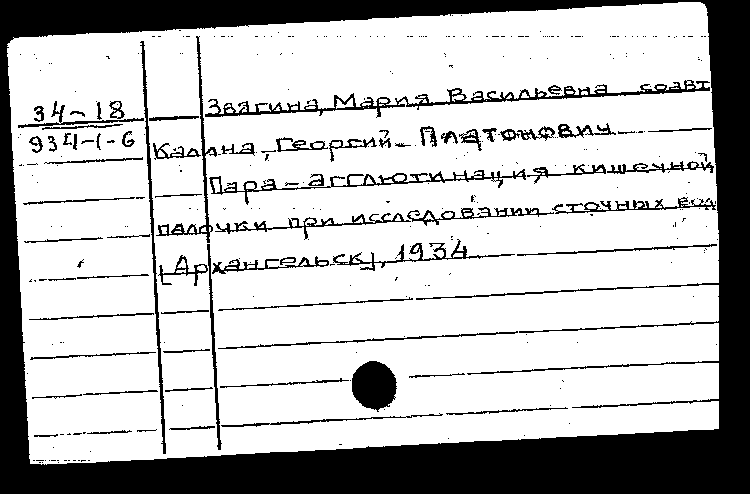 34-18
Звягина, Мария Васильевна соавт
934-1-6
Калина, Георгий Платонович
Пара-агглютинация кишечной
палочки при исследовании сточных вод
[Архангельск], 1934